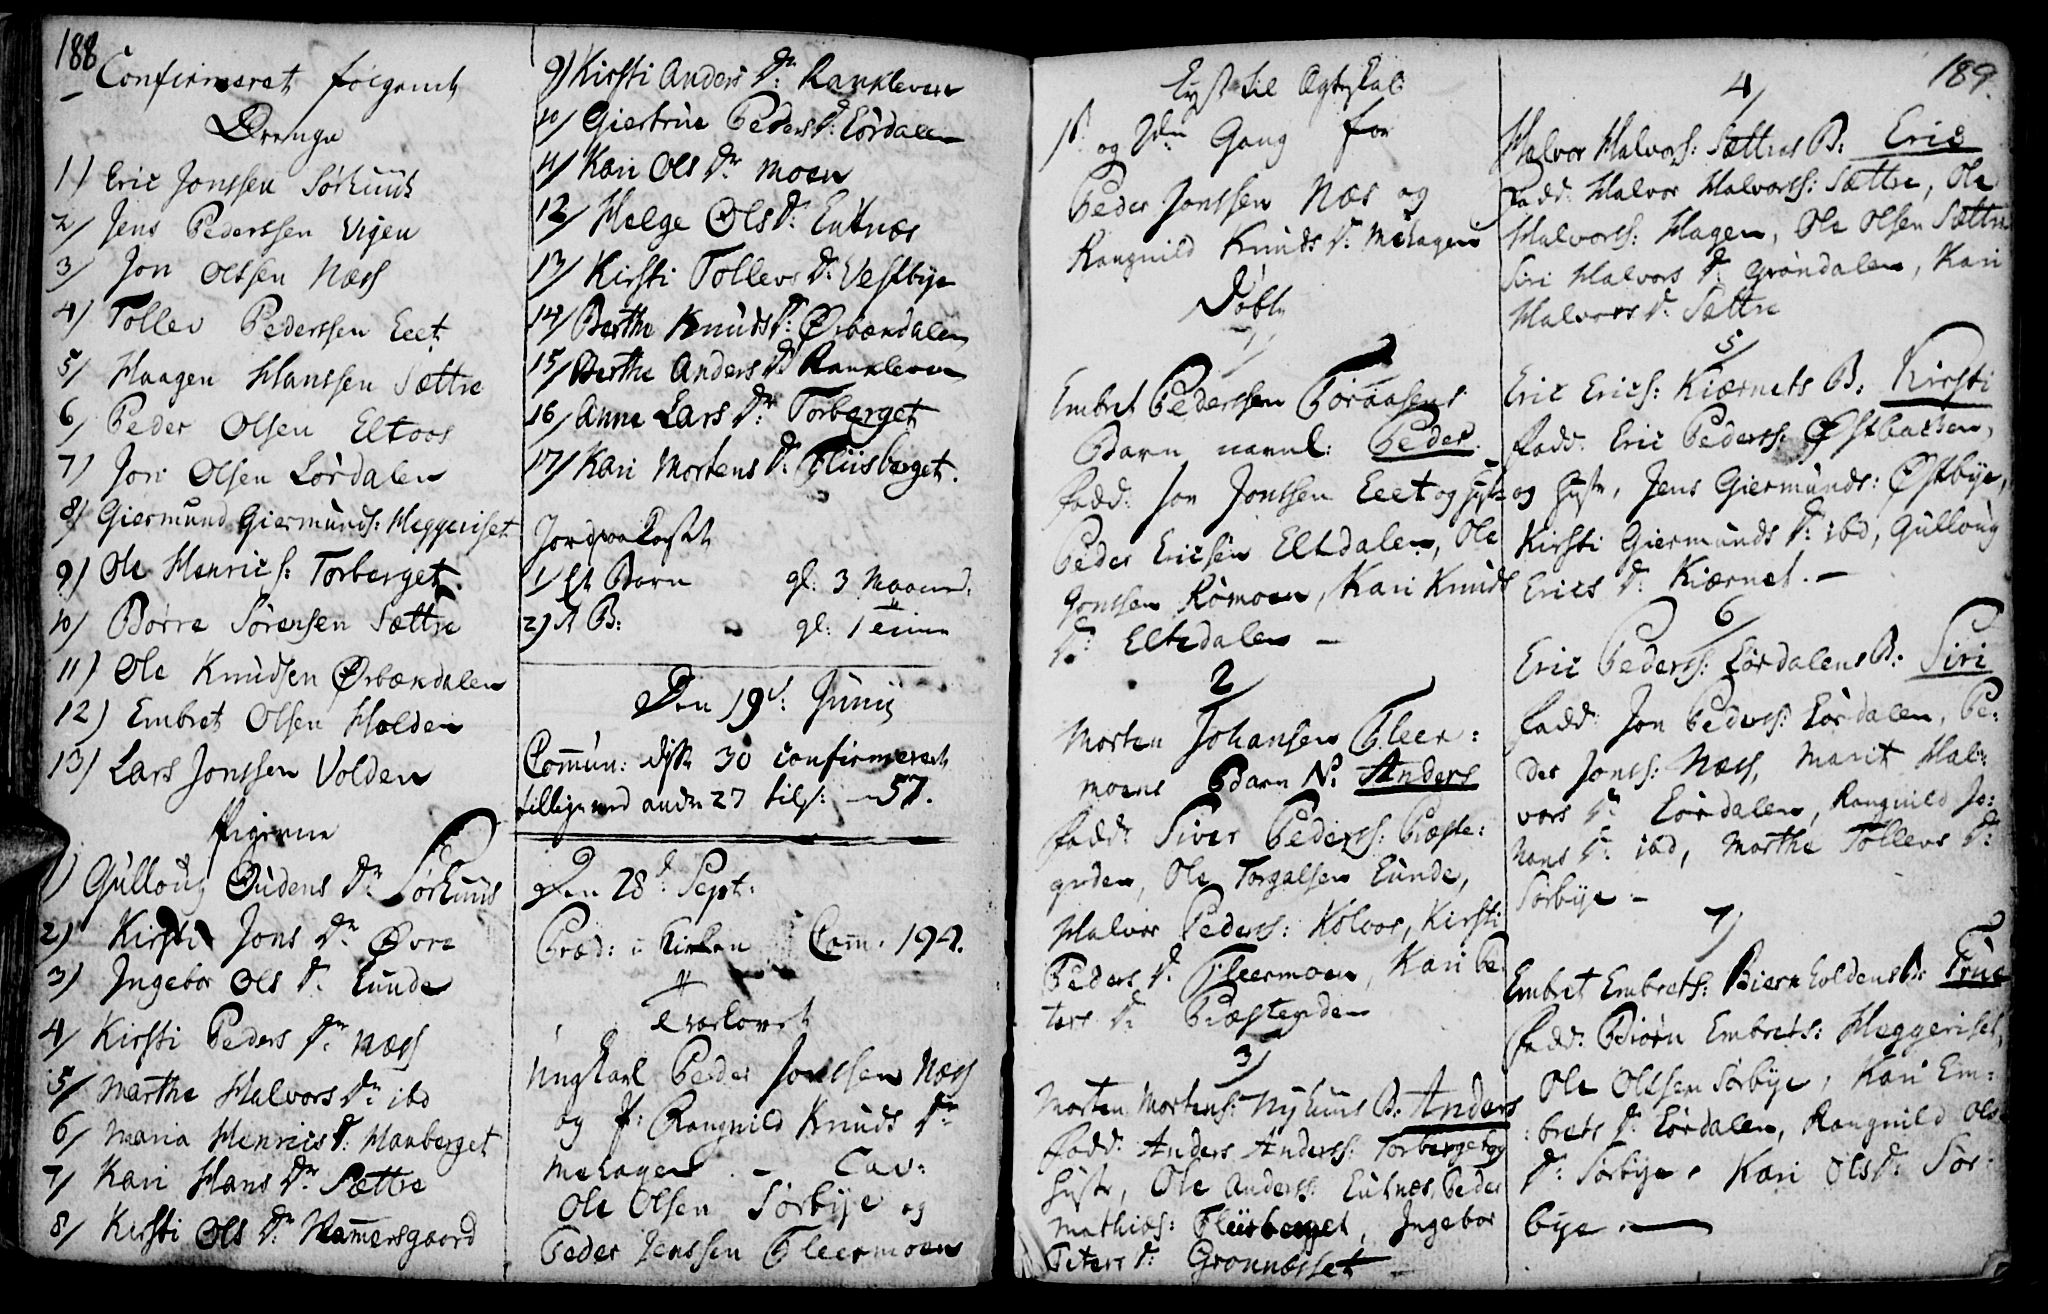 188
Confirmeret følgende
Drenge
1) Eric Jonssen Sørhuus
2/ Jens Pederssen Vigen
3/ Jon Olssen Næss
4) Tollev Pederssen Eeet
5/ Haagen Hanssen Sættre
6/ Peder Olsen Eltaas
7) Jon Olsen Lørdalen
8) Giermund Giermunds: Heggeriset
9) Ole Henrics: Torberget
10) Børre Sørensen Sættre
11) Ole Knudsen Ørbændalen
12) Embret Olsen Holden
13) Lars Jonssen Volden
Pigerne
1) Gulloug Oudens Dr Sørhuus
2) Kirsti Jons Dr Øvre
3) Ingebor Ols Dr. Lunde
4/ Kirsti Peders Dr Næss
5/ Marthe Halvors Dr ibd
6/ Maria Henrics Dr. Hanberget
7/ Kari Hans Dr Sættre
8/ Kirsti Ols Dr: Hammersgaard
9) Kirsti Anders Dr: Rankleven
10/ Giertrue Peders Dr. Lørdalen
11/ Kari Ols Dr Moen
12/ Helge Ols Dr: Lutnæs
13/ Kirsti Tollevs Dr: Vestbye
14/ Berthe Knuds Dr: Ørbændalen
15/ Berthe Anders Dr Rankleven
16/ Anne Lars Dr: Torberget
17/ Kari Mortens Dr: Fliisberget.
Jordpaakastet
1/ Et Barn gl: 3 Maaned.
2) Et B: gl: 1
Den 19d: Junii
Commun: disse 30 confirmerede
tillige med andre 27 tils: — 57.
Den 28d Sept:
Præd: i Kirken Com: 194.
Trolovet
Ungkarl Peder Jonssen Næss
og P: Rangnild Knuds Dr
Mehagen. – Cav:
Ole Olsen Sørbye og
Peder Jenssen Fleermoen
189.
Lyst til Ægteskab
1ste og 2den Gang for
Peder Jonssen Næs og
Rangnild Knuds Dr: Mehagen
Døbt
1/
Embret Pederssen Foraasens
Barn navnl: Peder
Fadd: Jon Jonssen Eeet og Hust:
Peder Ericsen Eltdalen, Ole
Jonssen Rømoen, Kari Knuds
Dr: Eltdalen –
2/
Morten Johansen Fleer:
moens Barn N: Anders
Fadd: Siver Peders: Præste:
grden, Ole Torgalsen Lunde,
Halvor Peders: Kolvos, Kirsti
Peders Dr. Fleermoen, Kari Pe:
ters Dr. Præstegrden
3/
Morten Mortens: Nyhuus B: Anders
Fadd: Anders Anders: Torberget og
Hustr, Ole Anders: Lutnæs, Peder
Mathias: Fliisberget, Ingebor
Peters Dr: Grønnæsset –
4/
Halvor Halvors: Sættres B: Eric
Fadd: Halvor Halvors: Sættre, Ole
Halvors: Hagen, Ole Olsen Sættre
Siri Halvors Dr: Grøndalen, Kari
Halvors Dr: Sættre
5/
Eric Erics: Kiærnets B: Kirsti
Fadd: Eric Peders: Østbachen,
og Hustr, Jens Giermunds: Østbye,
Kirsti Giermunds Dr: ibd, Gulloug
Erics Dr: Kiærnet. –
6/
Eric Peders: Lørdalens B: Siri
Fadd: Jon Peders: Lørdalen, Pe:
der Jons: Næss, Marit Hal:
vors Dr. Lørdalen, Rangnild Jo:
hans Dr: ibd, Marthe Tollevs Dr:
Sørbye –
7/
Embret Embrets: Bierkholdens B: True
Fadd: Biørn Embrets: Heggeriset,
Ole Olssen Sørbye, Kari Em:
:brets Dr. Lørdalen, Rangnild Ols
Dr: Sørbye, Kari Ols Dr: Sør:
bye. —